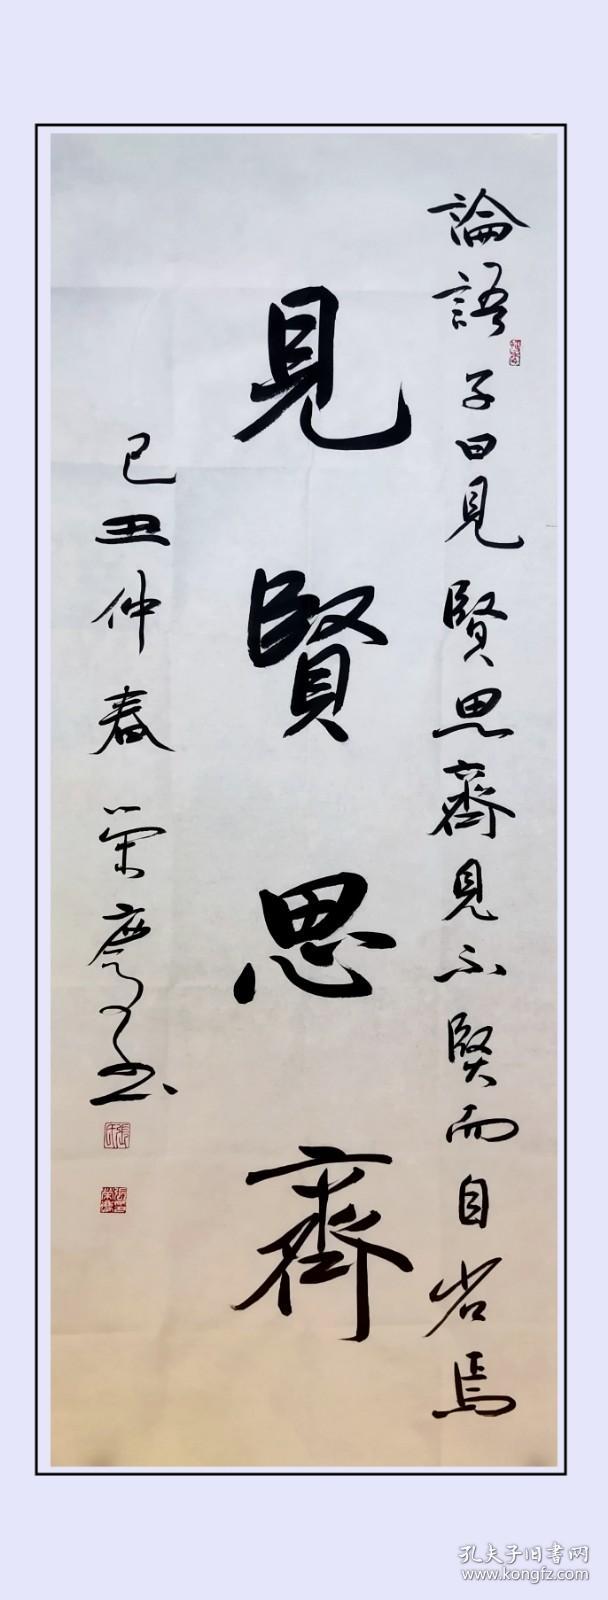 論語子曰見賢思齊見不賢而自省焉
見賢思齊
己丑仲春榮慶書
孔夫子旧书网
www.kongfz.com